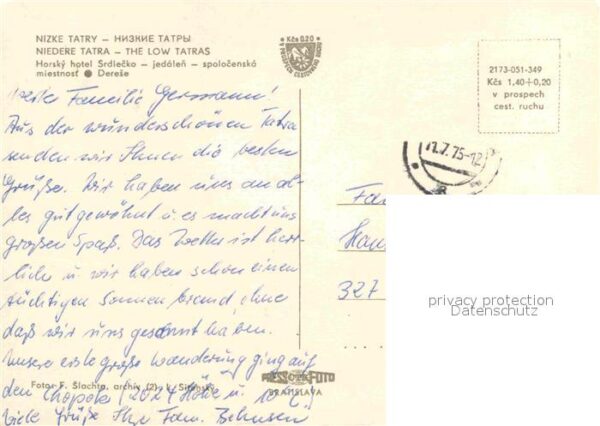 NIZKE TATRY — НИЗКИЕ ТАТРЫ
NIEDERE TATRA - THE LOW TATRAS
Horský hotel Srdiečko - jedáleň - spoločenská
miestnosť ● Dereše
Kčs 0,20
V PROSPECH CESTOVNÉHO RUCHU
2173-051-349
Kčs 1,40+0,20
v prospech
cest. ruchu
Familie Germann!
Aus der wunderschönen Tatra
senden wir Ihnen die besten
Grüße. Wir haben uns an al-
les gut gewöhnt u. es macht uns
großen Spaß. Das Wetter ist herr-
lich u. wir haben schon einen
tüchtigen Sonnenbrand ohne
daß wir uns gesonnt haben.
Unsere erste große Wanderung ging auf
den Chopok (2024 Höhe u.
Viele Grüße Ihre Fam.
12.7.75-12
Fam
327
privacy protection
Datenschutz
Foto: F. Šlachta, archív (2), L.
PRESSFOTO
BRATISLAVA